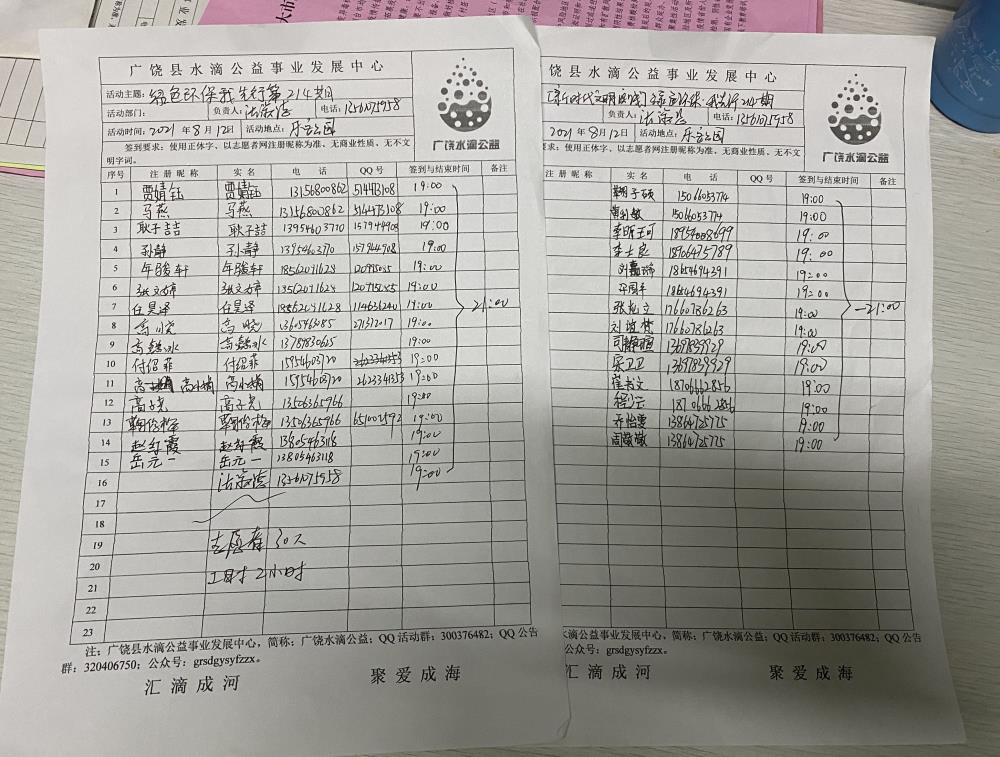 广饶县水滴公益事业发展中心
活动主题：绿色环保我先行第214期
活动部门： 负责人： 电话：13561075958
活动时间：2021年8月12日 活动地点：乐安公园
签到要求：使用正体字、以志愿者网注册昵称为准、无商业性质、无不文
明字词。
广饶水滴公益
序号 注册昵称 实名 电话 QQ号 签到与结束时间 备注
1 贾婧钰 贾婧钰 13156800862 514473108 19:00
2 马燕 马燕 13156800862 514473108 19:00
3 耿子喆 耿子喆 13954603770 157944908 19:00
4 孙静 孙静 13954603770 157944908 19:00
5 年骏轩 年骏轩 18562041628 19:00
6 张文婷 张文婷 18562041628 19:00
7 任昊泽 任昊泽 18562041628 19:00 21:00
8 高晓 高晓 271312017 19:00
9 13789830625 19:00
10 付绍菲 付绍菲 15954603720 262334353 19:00
11 高小娟 高小娟 15954603720 262334353 19:00
12 高子尧 高子尧 13506365966 19:00
13 13506365966 651002592 19:00
14 赵红霞 赵红霞 13805463118 19:00
15 岳元一 岳元一 13805463118 19:00
16 13561075958 19:00
17
18
19 志愿者 30人
20
21 工时 2小时
22
23
注：广饶县水滴公益事业发展中心，简称：广饶水滴公益；QQ活动群：300376482；QQ公告
群：320406750；公众号：grsdgysyfzzx。
汇滴成河 聚爱成海
饶县水滴公益事业发展中心
[新时代文明实践]绿色环保·我先行214期
负责人： 电话：13561075958
2021年8月12日 活动地点：乐安公园
要求：使用正体字、以志愿者网注册昵称为准、无商业性质、无不文
广饶水滴公益
注册昵称 实名 电话 QQ号 签到与结束时间 备注
15066053774 19:00
15066053774 19:00
李昕珂 18954008699 19:00
李士良 18906475789 19:00
刘嘉瑞 18654694391 19:00
18654694391 19:00
17660786263 19:00 —21:00
17660786263 19:00
司静煊 13697839929 19:00
宋卫卫 13697839929 19:00
崔书文 18706662856 19:00
程云 18706662856 19:00
乔怡雯 13864725775 19:00
周薇薇 13864725775 19:00
水滴公益事业发展中心，简称：广饶水滴公益；QQ活动群：300376482；QQ公告
公众号：grsdgysyfzzx。
汇滴成河 聚爱成海